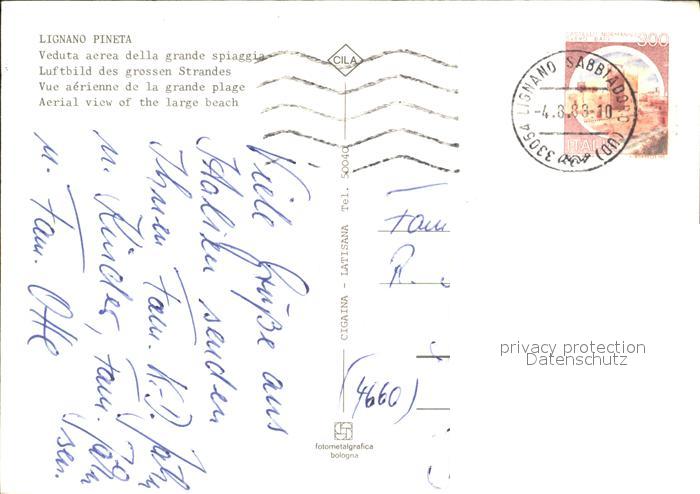 LIGNANO PINETA
Veduta aerea della grande spiaggia
Luftbild des grossen Strandes
Vue aérienne de la grande plage
Aerial view of the large beach
CILA
CASTELLO NORMANNO
300
ITALIA
33054 LIGNANO SABBIADORO (UD)
-4.8.88-10
Viele Grüße aus
Italien senden
Ihnen Fam. K.-D.
u. Kinder, Fam.
sen.
u. Fam. Otte
CIGAINA - LATISANA Tel. 50040
Fam
R.
(4660)
fotometalgrafica
bologna
privacy protection
Datenschutz